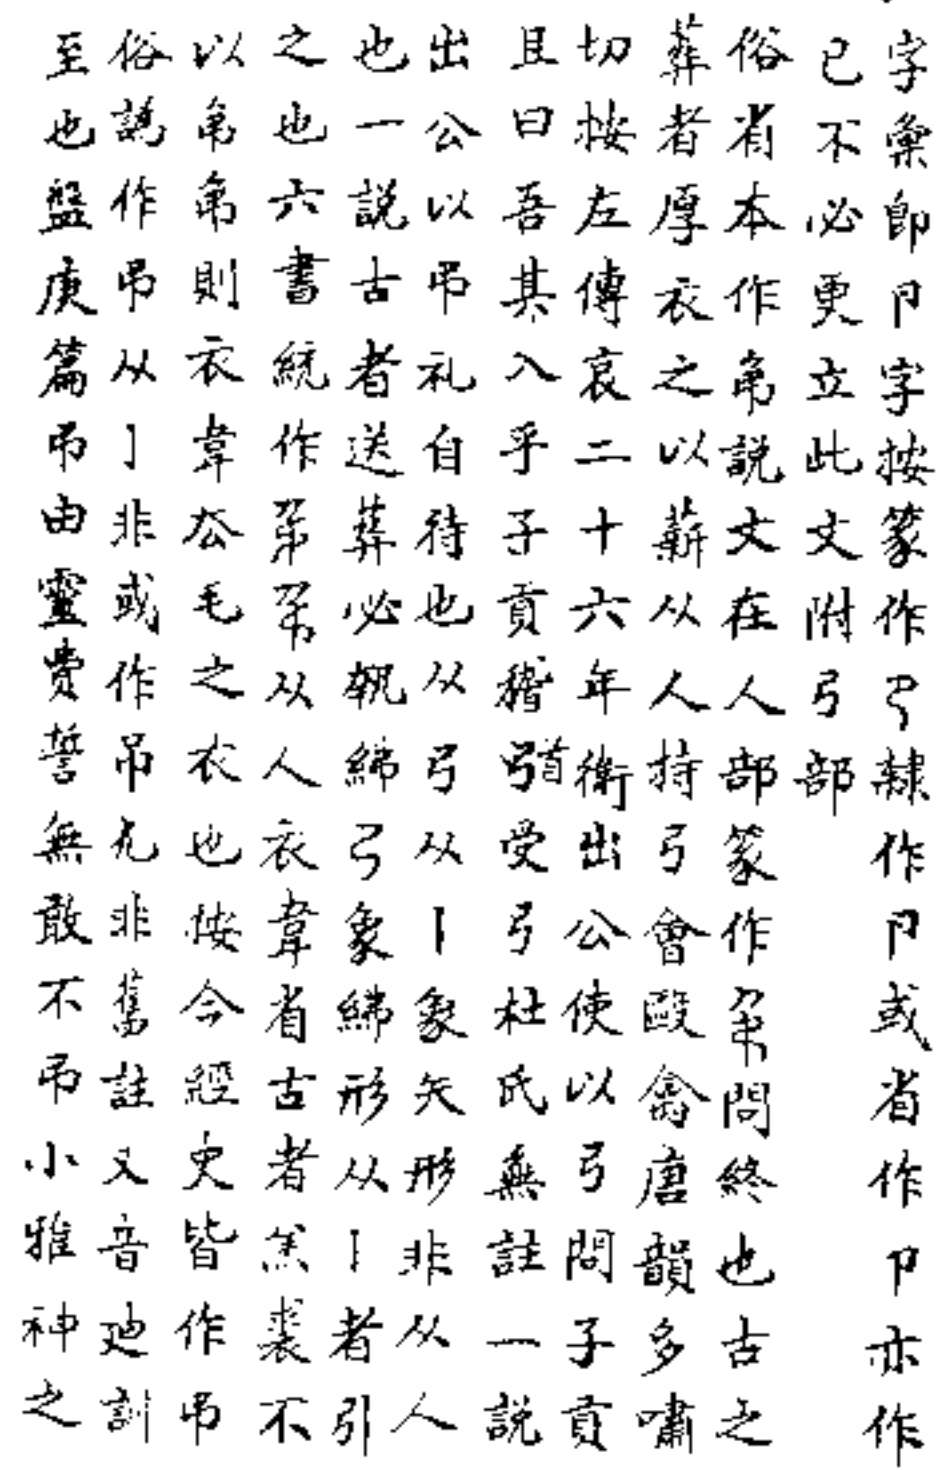 字彙即卪字按篆作㔾隸作卪或省作卩亦作
已不必更立此文附弓部
俗省本作弔說文在人部篆作問終也古之
葬者厚衣之以薪从人持弓會敺禽唐韻多嘯
切按左傳哀二十六年衛出公使以弓問子貢
且曰吾其入乎子貢稽首受弓杜氏無註一說
出公以弔礼自待也从弓从丨象矢形非从人
也一說古者送葬必執紼弓象紼形从丨者引
之也六書統作从人衣韋省古者羔裘不
以弔弔則衣韋厺毛之衣也按今經史皆作弔
俗譌作吊从亅非或作吊尤非舊註又音廸訓
至也盤庚篇弔由靈費誓無敢不弔小雅神之